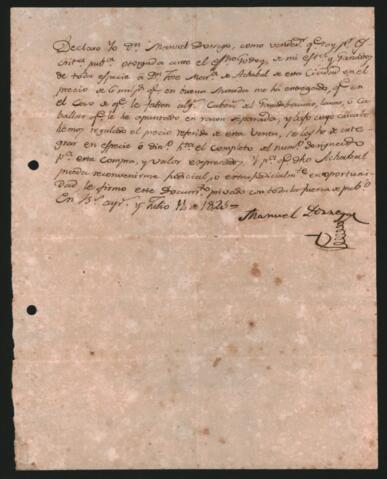 Declaro Yo Dn. Manuel Dorrego, como vendedor qe. soy pr.
Escrita. pubca. otorgada ante el esno. Godoy, de mi esta. y Ganados
de toda especie a Dn. Foe Mara. de Achabal de esta Ciudad en el
precio de qe. en buena Moneda me ha entregado, qe. en
el Caso de qe. le falten algs. Cabes. al Ganado bacuno, lanar, o Ca-
ballar qe. le he apuntado en razon separada, y bajo cuyo
hemos regulado el precio referido de esta Venta, se los he de inte-
grar en especie o dino. hta. el completo del numo. designado
pa. esta Compra, y valor expresados. Y pa. qe. dho. Achabal
pueda reconvenirme judicial, o extrajudicialmte. en oportuni-
dad le firmo este Documto. privado con toda la fuerza de pubco.
En Bs. ayrs. y Julio 11 de 1825=
Manuel Dorrego